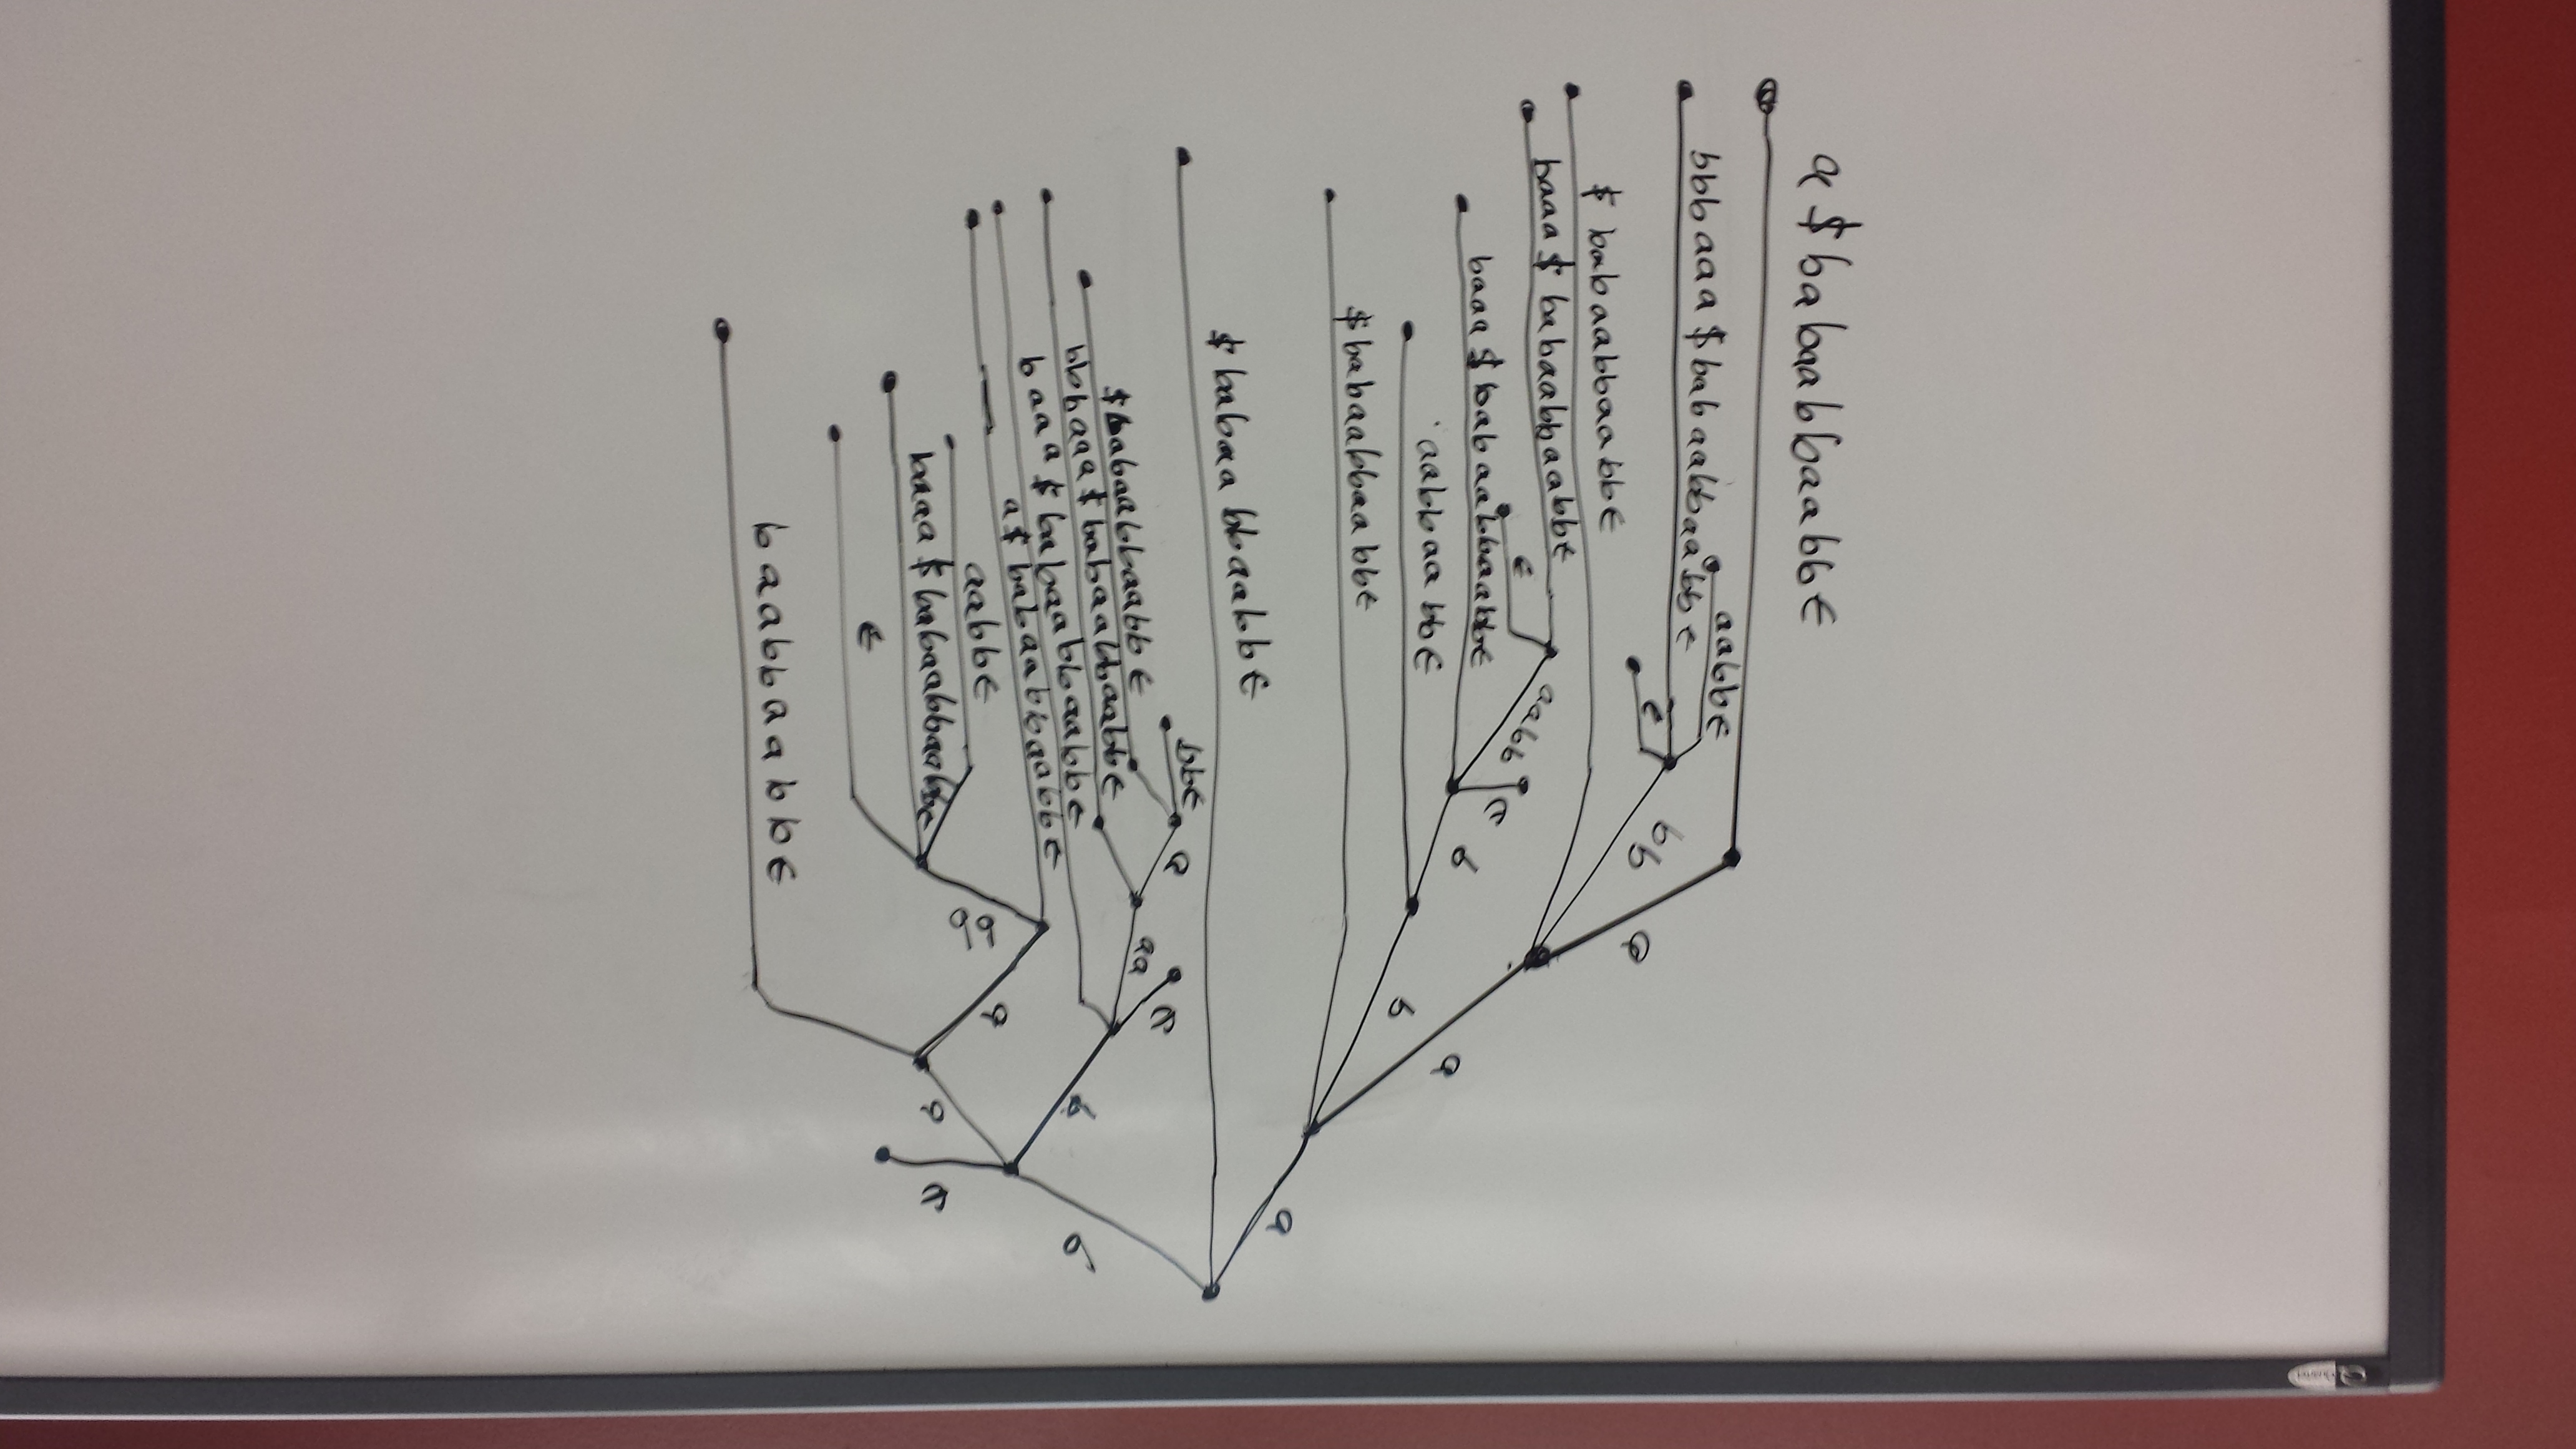 Quartet
a
b
€
a
b
a
b
€
a
a
aa
bb
bb
b
€
a
aabb
bb€
aabb€
€
€
a$babaabbaabb€
bbbaaa$babaabbaabb€
$babaabbaabb€
baaa$babaabbaabb€
baaa$babaabbaabb€
aabbaabb€
$babaabbaabb€
$babaabbaabb€
$babaabbaabb€
bbbaaa$babaabbaabb€
baaa$babaabbaabb€
a$babaabbaabb€
aabb€
baaa$babaabbaabb€
€
baabbaabb€